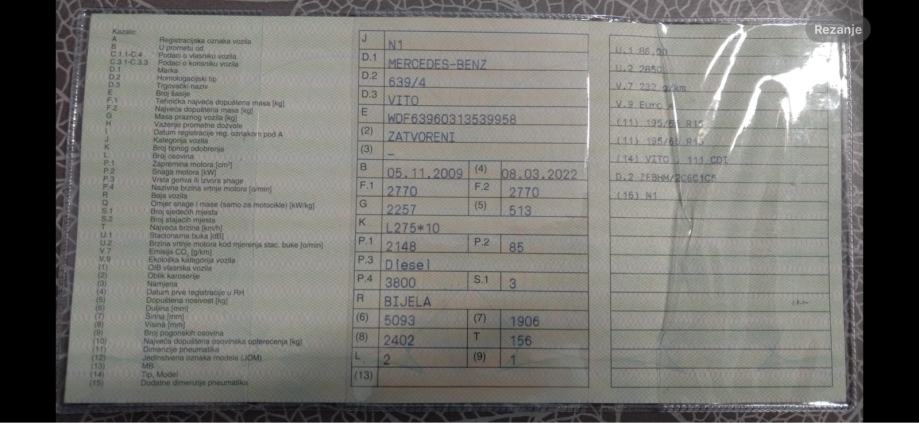 Rezanje
Kazalo:
A Registracijska oznaka vozila
B U prometu od
C.1.1-C.4 Podaci o vlasniku vozila
C.3.1-C.3.3 Podaci o korisniku vozila
D.1 Marka
D.2 Homologacijski tip
D.3 Trgovački naziv
E Broj šasije
F.1 Tehnička najveća dopuštena masa [kg]
F.2 Najveća dopuštena masa [kg]
G Masa praznog vozila [kg]
H Važenje prometne dozvole
I Datum registracije reg. oznakom pod A
J Kategorija vozila
K Broj tipnog odobrenja
L Broj osovina
P.1 Zapremina motora [cm³]
P.2 Snaga motora [kW]
P.3 Vrsta goriva ili izvora snage
P.4 Nazivna brzina vrtnje motora [o/min]
R Boja vozila
Q Omjer snage i mase (samo za motocikle) [kW/kg]
S.1 Broj sjedećih mjesta
S.2 Broj stajaćih mjesta
T Najveća brzina [km/h]
U.1 Stacionarna buka [dB]
U.2 Brzina vrtnje motora kod mjerenja stac. buke [o/min]
V.7 Emisija CO₂ [g/km]
V.9 Ekološka kategorija vozila
(1) OIB vlasnika vozila
(2) Oblik karoserije
(3) Namjena
(4) Datum prve registracije u RH
(5) Dopuštena nosivost [kg]
(6) Duljina [mm]
(7) Širina [mm]
(8) Visina [mm]
(9) Broj pogonskih osovina
(10) Najveća dopuštena osovinska opterećenja [kg]
(11) Dimenzije pneumatika
(12) Jedinstvena oznaka modela (JOM)
(13) MB
(14) Tip, Model
(15) Dodatne dimenzije pneumatika
J N1
D.1 MERCEDES-BENZ
D.2 639/4
D.3 VITO
E WDF63960313539958
(2) ZATVORENI
(3) –
B 05.11.2009 (4) 08.03.2022
F.1 2770 F.2 2770
G 2257 (5) 513
K L275*10
P.1 2148 P.2 85
P.3 Diesel
P.4 3800 S.1 3
R BIJELA
(6) 5093 (7) 1906
(8) 2402 T 156
L 2 (9) 1
(13)
U.1 86,00
U.2 2850
V.7 232 g/km
V.9 Euro
(11) 195/65 R15
(11) 195/65
(14) VITO 111 CDI
D.2
(16) N1